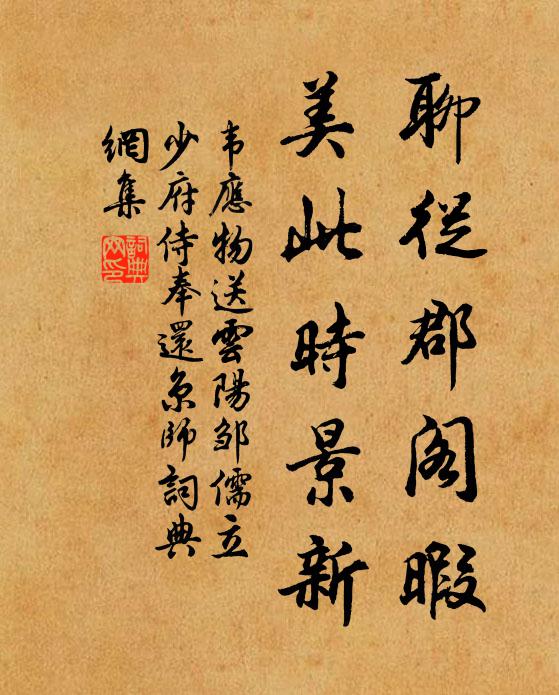 聊從郡阁暇
美此時景新
韦應物送雲陽邹儒立
少府侍奉還京师詞典
網集
詞典
网印